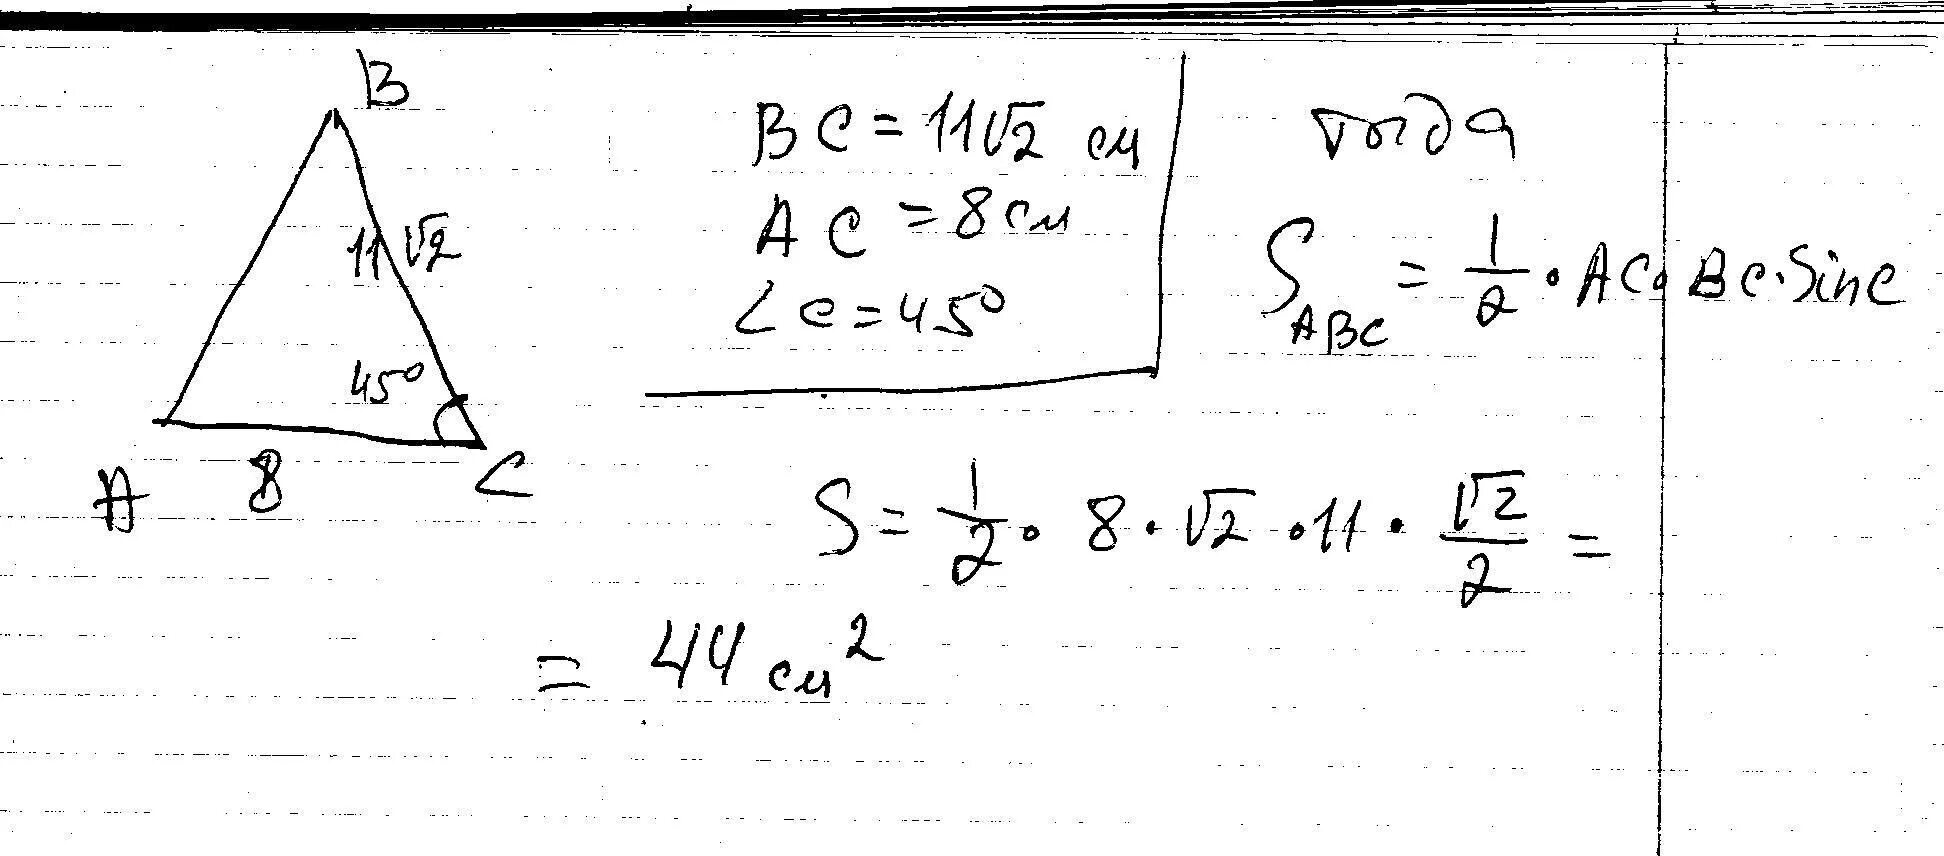 B
11√2
45°
A 8 C
BC = 11√2 см
AC = 8 см
∠C = 45°
тогда
S_ABC = 1/2 · AC · BC · Sin C
S = 1/2 · 8 · √2 · 11 · √2/2 =
= 44 см²